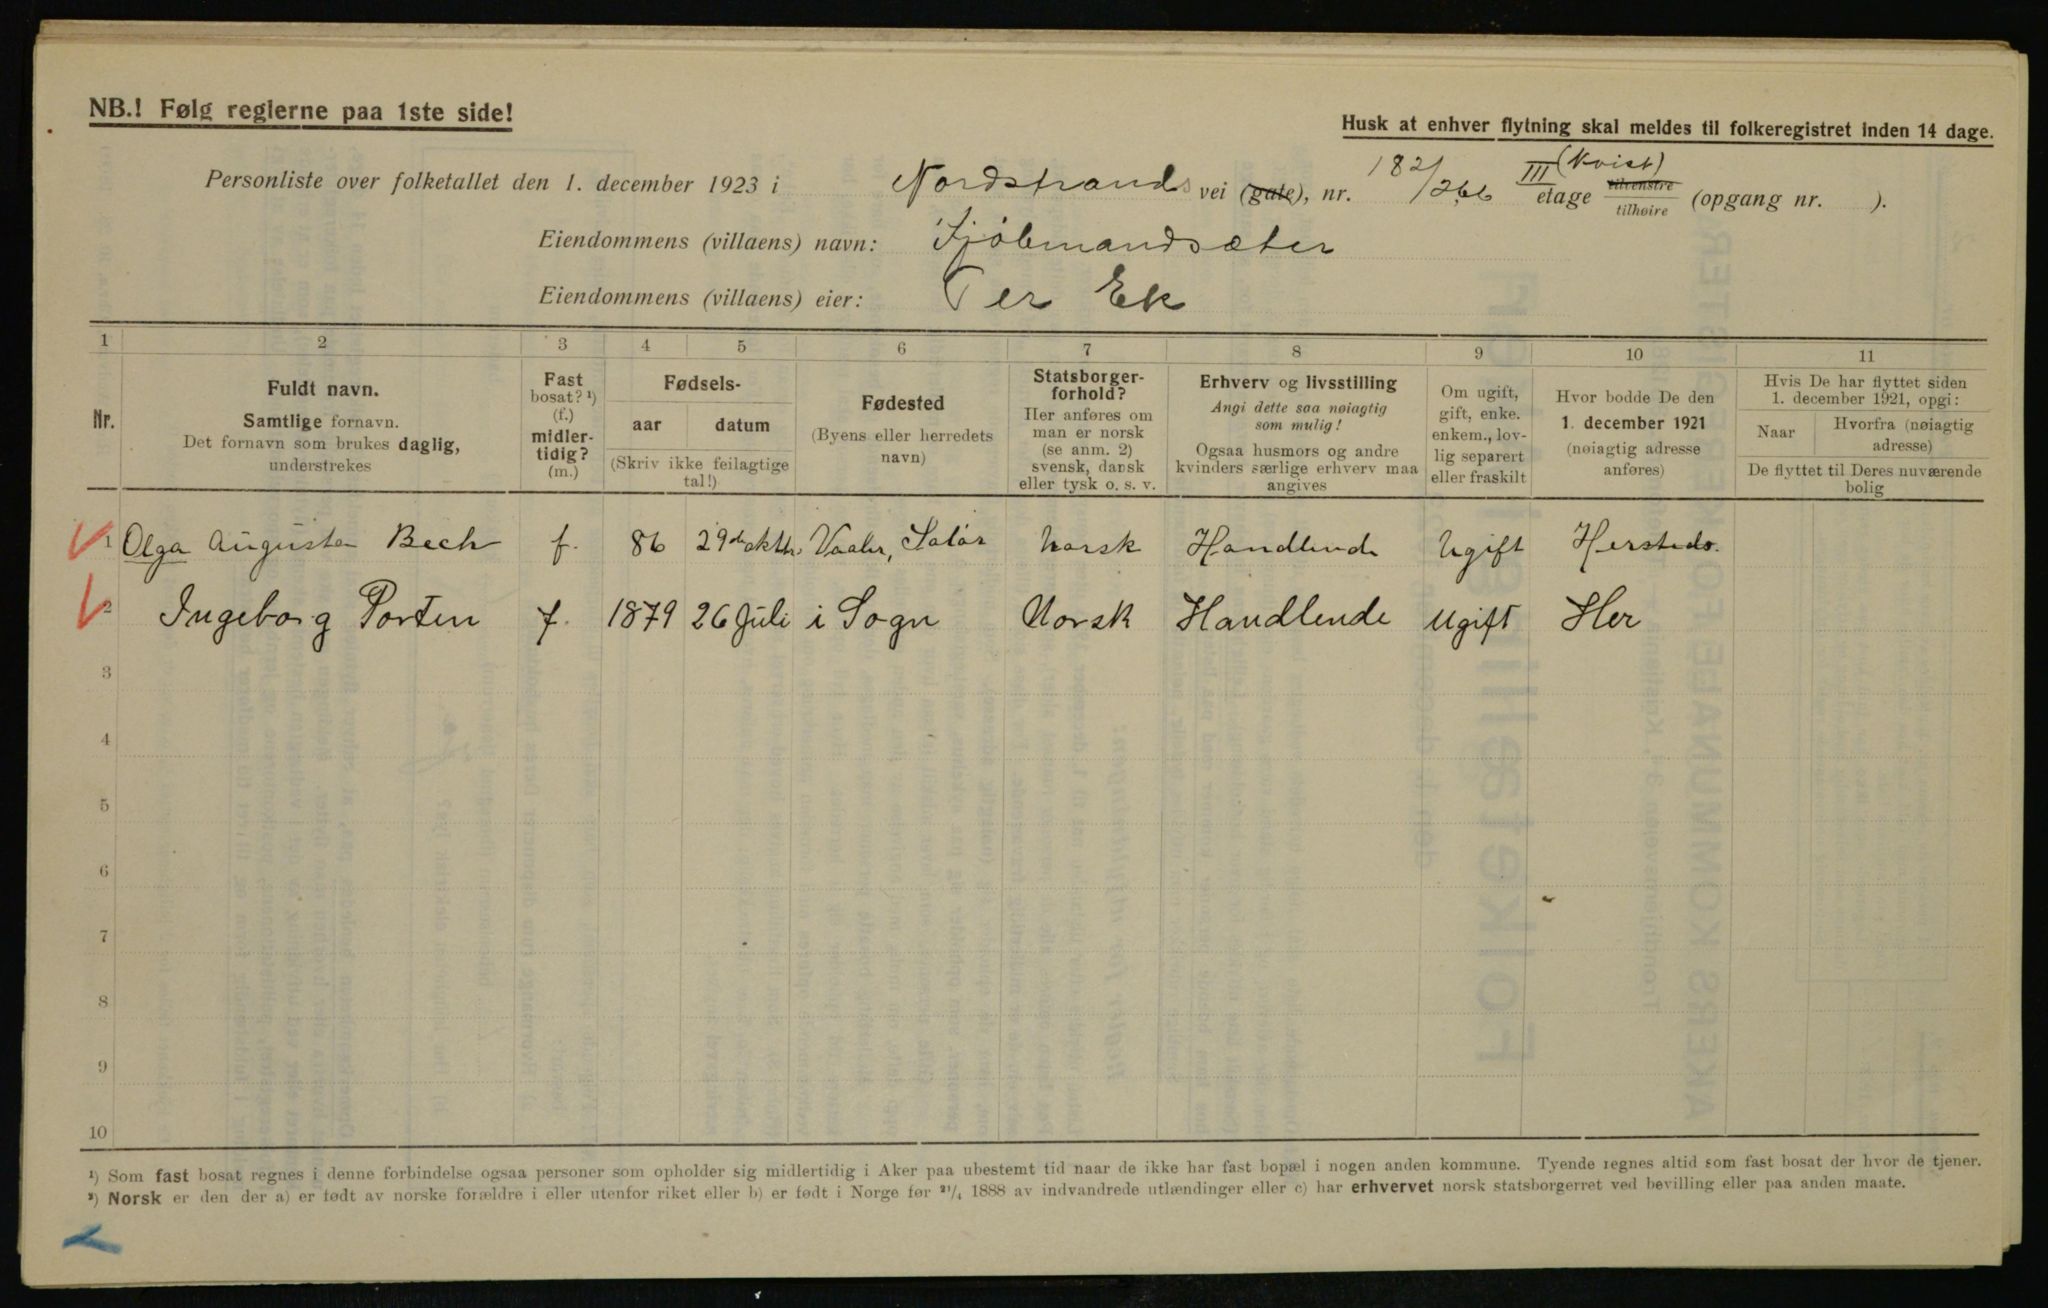 NB.! Følg reglerne paa 1ste side!
Husk at enhver flytning skal meldes til folkeregistret inden 14 dage.
Personliste over folketallet den 1. december 1923 i Nordstrands vei (gate), nr. 182/266 III (Kvist) etage tilvenstre tilhøire (opgang nr. ).
Eiendommens (villaens) navn: Sjöbmandsæter
Eiendommens (villaens) eier: Per Ek
1 2 3 4 5 6 7 8 9 10 11
Nr.
Fuldt navn.
Samtlige fornavn.
Det fornavn som brukes daglig,
understrekes
Fast
bosat? ¹)
(f.)
midler-
tidig?
(m.)
Fødsels-
aar datum
(Skriv ikke feilagtige
tal!)
Fødested
(Byens eller herredets
navn)
Statsborger-
forhold?
Her anføres om
man er norsk
(se anm. 2)
svensk, dansk
eller tysk o. s. v.
Erhverv og livsstilling
Angi dette saa nøiagtig
som mulig!
Ogsaa husmors og andre
kvinders særlige erhverv maa
angives
Om ugift,
gift, enke.
enkem., lov-
lig separert
eller fraskilt
Hvor bodde De den
1. december 1921
(nøiagtig adresse
anføres)
Hvis De har flyttet siden
1. december 1921, opgi:
Naar
Hvorfra (nøiagtig
adresse)
De flyttet til Deres nuværende
bolig
1 Olga Augusta Bech f. 86 29de oktbr. Vaaler, Solör Norsk Handlende Ugift Hersteds.
2 Ingeborg Porten f. 1879 26 Juli i Sogn Norsk Handlende Ugift Her
3
4
5
6
7
8
9
10
¹) Som fast bosat regnes i denne forbindelse ogsaa personer som opholder sig midlertidig i Aker paa ubestemt tid naar de ikke har fast bopæl i nogen anden kommune. Tyende regnes altid som fast bosat der hvor de tjener.
²) Norsk er den der a) er født av norske forældre i eller utenfor riket eller b) er født i Norge før ²¹/₄ 1888 av indvandrede utlændinger eller c) har erhvervet norsk statsborgerret ved bevilling eller paa anden maate.